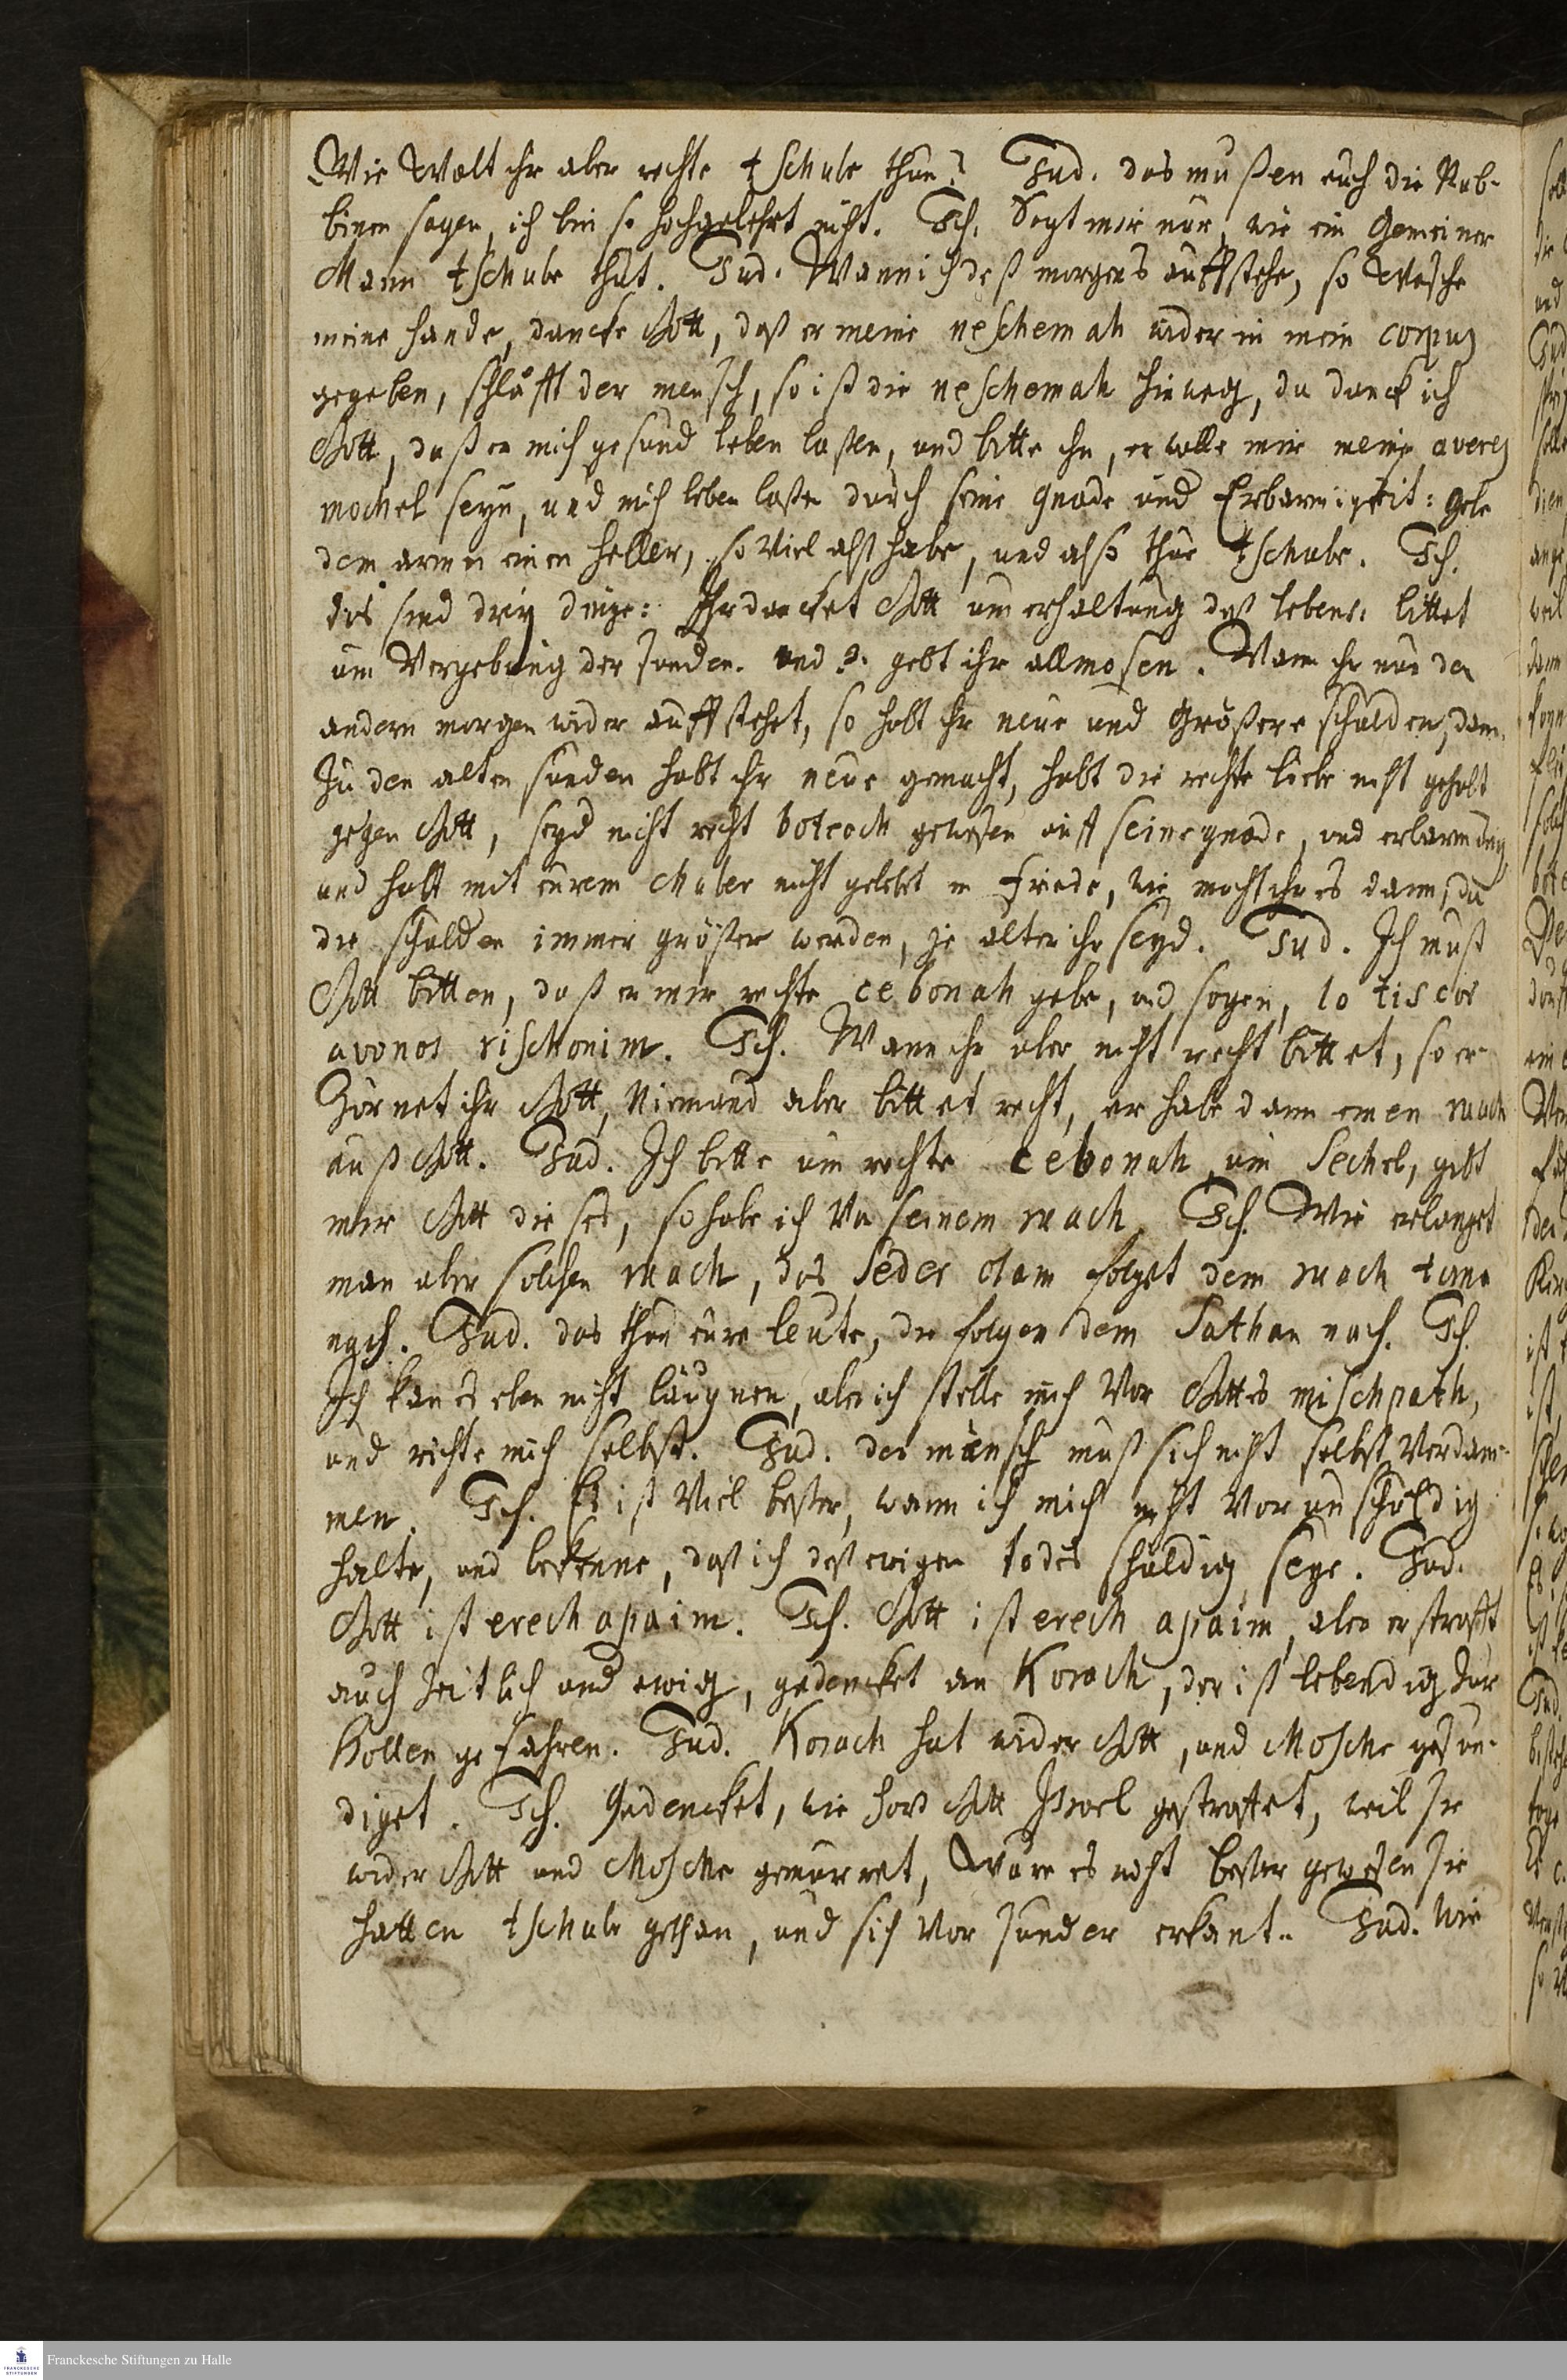 Wie Wolt ihr aber rechte tschube thun? Jud. das mußen euch die Rab-
binen sagen, ich bin so hochgelehrt nicht. Ich. Sagt mir nur, wie ein Gemeiner
Mann tschube thut. Jud. Wann ich deß morgens auffstehe, so Wasche
meine hände, dancke Gott, daß er meine neschemah wider in mein corpus
gegeben, schläfft der mensch, so ist die neschemah hinweg, da danck ich
Gott, daß er mich gesund leben laßen, und bitte ihn, er wolle mir meine averes
mochel seyn, und mich leben laßen durch seine gnade und Erbarmigkeit: gebe
dem armen einen heller, so viel alß habe, und also thue tschube. Ich.
dis sind drey dinge: Ihr dancket Gott um erhaltung deß lebens: bittet
um Vergebung der sunden. und 3. gebt ihr allmosen. Wann ihr nun den
andern morgen wider auffstehet, so habt ihr neue und größere schulden, dann
Zu den alten sunden habt ihr neue gemacht, habt die rechte liebe nicht gehabt
gegen Gott, seyd nicht recht boteach gewesen auff seine gnade, und erbarmung
und habt mit eurem chaber nicht gelebet in friede, wie macht ihr es dann, da
die schulden immer größer werden, je älter ihr seyd. Jud. Ich muß
Gott bitten, daß er mir rechte cebonah gebe, und sagen, lo tiscor
avonos rischonim. Ich. Wann ihr aber nicht recht bittet, so er-
Zürnet ihr Gott, Niemand aber bittet recht, er habe dann einen ruach
auß Gott. Jud. Ich bitte um rechte cebonah, um Sechel, gibt
mir Gott dieses, so habe ich Von seinem ruach. Ich. Wie erlanget
man aber solchen ruach, das Seder olam folget dem ruach tuma
nach. Jud. das thun eure leute, die folgen dem Sathan nach. Ich.
Ich kan es eben nicht läugnen, aber ich stelle mich Vor Gottes mischpath,
und richte mich selbst. Jud. der mänsch muß sich nicht selbst Verdam-
men. Ich. Es ist Viel beßer, wann ich mich nicht Vor unschuldig
halte, und bekenne, daß ich deß ewigen todes schuldig seye. Jud.
Gott ist erech apaim. Ich. Gott ist erech apaim, aber er strafft
auch Zeitlich und ewig, gedencket an Korach, der ist lebendig Zur
Höllen gefahren. Jud. Korach hat wider Gott, und Mosche gesun-
diget. Ich. Gedencket, wie hard Gott Israel gestraffet, weil sie
wider Gott und Mosche gemurret, Wäre es nicht beßer gewesen sie
hatten tschube gethan, und sich Vor sunder erkant. Jud. Wir
Franckesche Stiftungen zu Halle